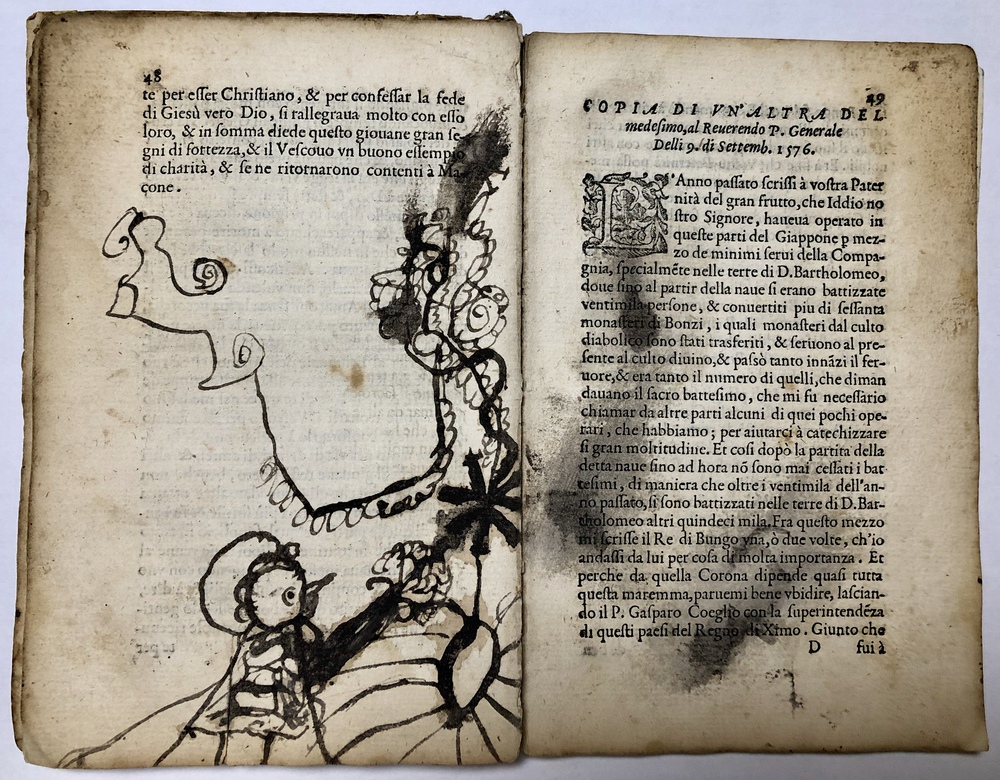 48
te per esser Christiano, & per confessar la fede
di Giesù vero Dio, si rallegraua molto con esso
loro, & in somma diede questo giouane gran se-
gni di fortezza, & il Vescouo vn buono essempio
di charità, & se ne ritornarono contenti à Ma-
çone.
49
COPIA DI VN'ALTRA DEL
medesimo, al Reuerendo P. Generale
Delli 9. di Settemb. 1576.
L'Anno passato scrissi à vostra Pater
nità del gran frutto, che Iddio no
stro Signore, haueua operato in
queste parti del Giappone p mez-
zo de minimi serui della Compa-
gnia, specialmẽte nelle terre di D. Bartholomeo,
doue sino al partir della naue si erano battizzate
ventimila persone, & conuertiti piu di sessanta
monasteri di Bonzi, i quali monasteri dal culto
diabolico sono stati trasferiti, & seruono al pre-
sente al culto diuino, & passò tanto innãzi il fer-
uore, & era tanto il numero di quelli, che diman
dauano il sacro battesimo, che mi fu necessario
chiamar da altre parti alcuni di quei pochi ope-
rari, che habbiamo; per aiutarci à catechizzare
si gran moltitudine. Et cosi dopò la partita della
detta naue sino ad hora nõ sono mai cessati i bat
tesimi, di maniera che oltre i ventimila dell'an-
no passato, si sono battizzati nelle terre di D. Bar-
tholomeo altri quindeci mila. Fra questo mezzo
mi scrisse il Re di Bungo vna, ò due volte, ch'io
andassi da lui per cosa di molta importanza. Et
perche da quella Corona dipende quasi tutta
questa maremma, paruemi bene vbidire, lascian-
do il P. Gasparo Coeglio con la superintendẽza
di questi paesi del Regno di Ximo. Giunto che
D fui à